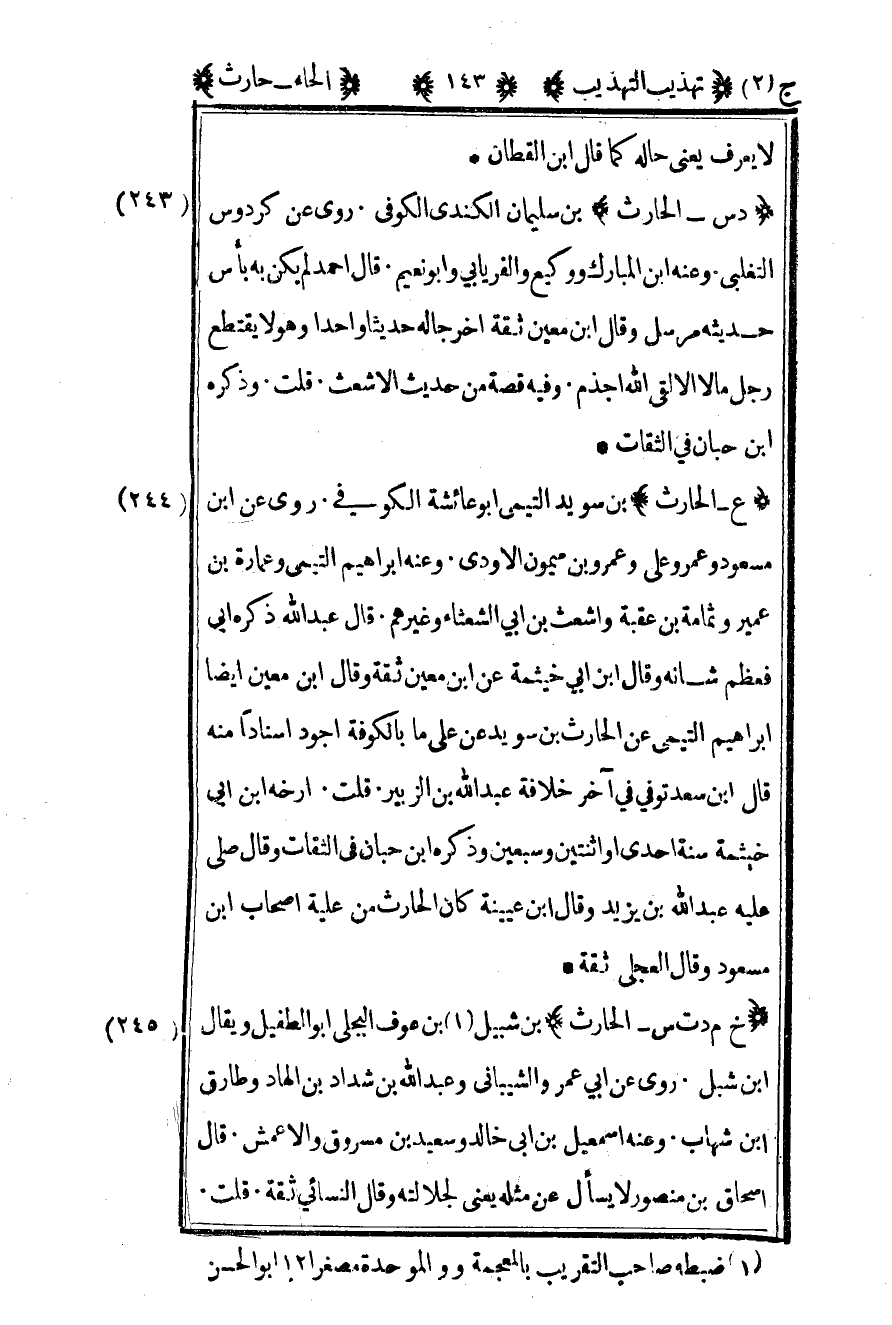 ج (٢) ﴿ تهذيب التهذيب ﴾ ﴿ ١٤٣ ﴾ ﴿ الحاء ـ حارث ﴾
لا يعرف يعنى حاله كما قال ابن القطان •
(٢٤٣) ﴿ دس ــ الحارث ﴾ بن سليمان الكندى الكوفى . روى عن كردوس
التغلبى . وعنه ابن المبارك ووكيع والفريابي وابونعيم . قال احمد لم يكن به بأس
حــديثه مرسل وقال ابن معين ثقة اخرجاله حديثا واحدا وهو لا يقتطع
رجل مالا الا لقى الله اجذم . وفيه قصة من حديث الاشعث . قلت . وذكره
ابن حبان في الثقات •
(٢٤٤) ﴿ ع ـ الحارث ﴾ بن سويد التيمى ابو عائشة الكوفي . روى عن ابن
مسعود وعمر وعلى وعمرو بن ميمون الاودى . وعنه ابراهيم التيمى وعمارة بن
عمير وثمامة بن عقبة واشعث بن ابي الشعثاء وغيرهم . قال عبدالله ذكره ابي
فعظم شــانه وقال ابن ابي خيثمة عن ابن معين ثقة وقال ابن معين ايضا
ابراهيم التيمى عن الحارث بن سويد عن على ما بالكوفة اجود اسناداً منه
قال ابن سعد توفي في آخر خلافة عبدالله بن الزبير . قلت . ارخه ابن ابي
خيثمة سنة احدى او اثنتين وسبعين وذكره ابن حبان فى الثقات وقال صلى
عليه عبدالله بن يزيد وقال ابن عيينة كان الحارث من علية اصحاب ابن
مسعود وقال العجلى ثقة •
(٢٤٥) ﴿ خ م د ت س ـ الحارث ﴾ بن شبيل (١) بن عوف البجلى ابو الطفيل ويقال
ابن شبل . روى عن ابي عمرو الشيبانى وعبدالله بن شداد بن الهاد وطارق
ابن شهاب . وعنه اسمعيل بن ابى خالد وسعيد بن مسروق والاعمش . قال
اسحاق بن منصور لا يسأل عن مثله يعنى لجلالته وقال النسائي ثقة . قلت .
(١) ضبطه صاحب التقريب بالمعجمة و والموحدة مصغرا ١٢ ابو الحسن